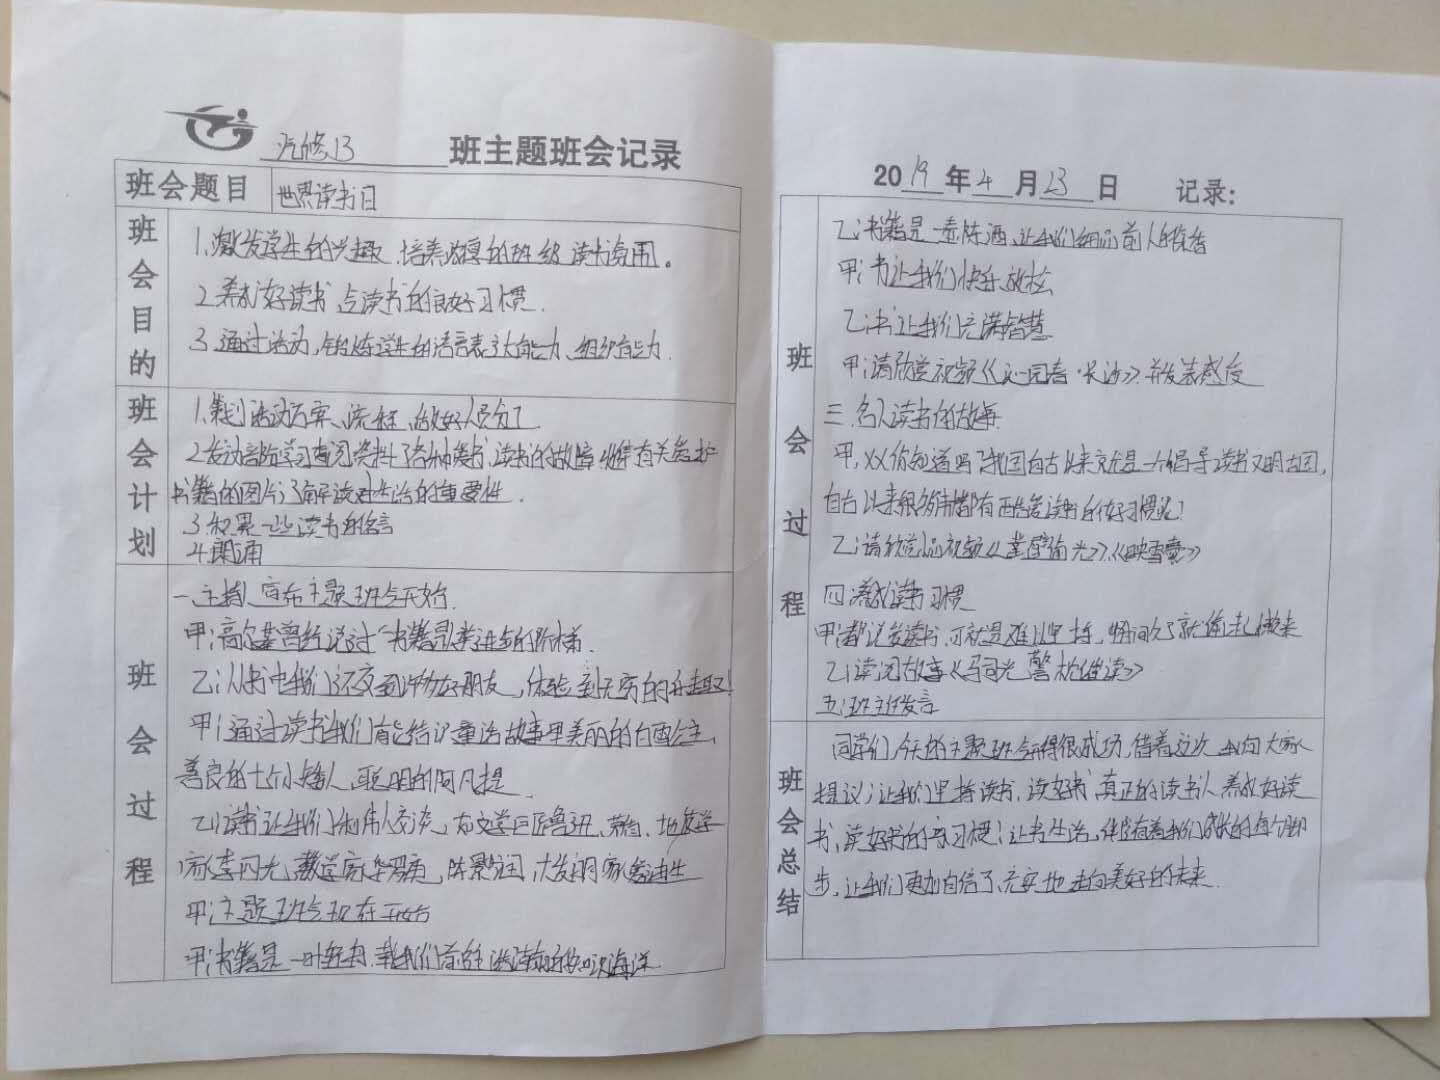 汽修13 班主题班会记录
班会题目 世界读书日
班会目的
1.激发学生的兴趣,培养浓厚的班级读书氛围。
2.养成好读书 读书的良好习惯.
3.通过活动,锻炼学生的语言表达能力、组织能力.
班会计划
1.策划活动方案、流程,做好人员分工
2.发动 学习查阅资料了 读书的故 收集有关爱护
书籍的图片了解读 生活的重要性.
3.积累一些读书的名言
4.朗诵
班会过程
一、主持人宣布主题班会开始.
甲:高尔基曾经说过"书籍是人类进步的阶梯.
乙:从书中我们还交到 好朋友,体验到无穷的
甲:通过读书我们能结识童话故事里美丽的白雪公主、
善良的七个小矮人、聪明的阿凡提.
乙:读书让我们和伟人交谈,有文学巨匠鲁迅、 、地质学
家李四光,数学家华罗庚,陈景润,大发明家爱迪生
甲:主题班会现在开始
甲:书籍是一叶轻舟,载我们前往 的知识海洋
2019年4月23日 记录:
班会过程
乙:书籍是一壶陈酒,让我们细品前人的
甲:书让我们快乐放松
乙:书让我们充满智慧
甲:请欣赏视频《沁园春·长沙》并发表感受
三.名人读书的故事
甲,XX你知道吗?我国自古以来就是一个倡导读书文明古国,
自古以来很多 都有 爱读书的好习惯呢?
乙:请欣赏 视频《凿壁偷光》.《 映雪 》
四.养成读书习惯
甲:都说爱读书,可就是难以坚持,时间久了就
乙:读阅故事《司马光警枕 读》
五:班主任发言
班会总结
同学们,今天的主题班会开得很成功,借着这次 向大家
提议:让我们坚持读书,读好书,真正的读书人养成好读
书,读好书的好习惯;让书生活,伴随着我们成长的每个脚
步,让我们更加自信、充实地走向美好的未来.